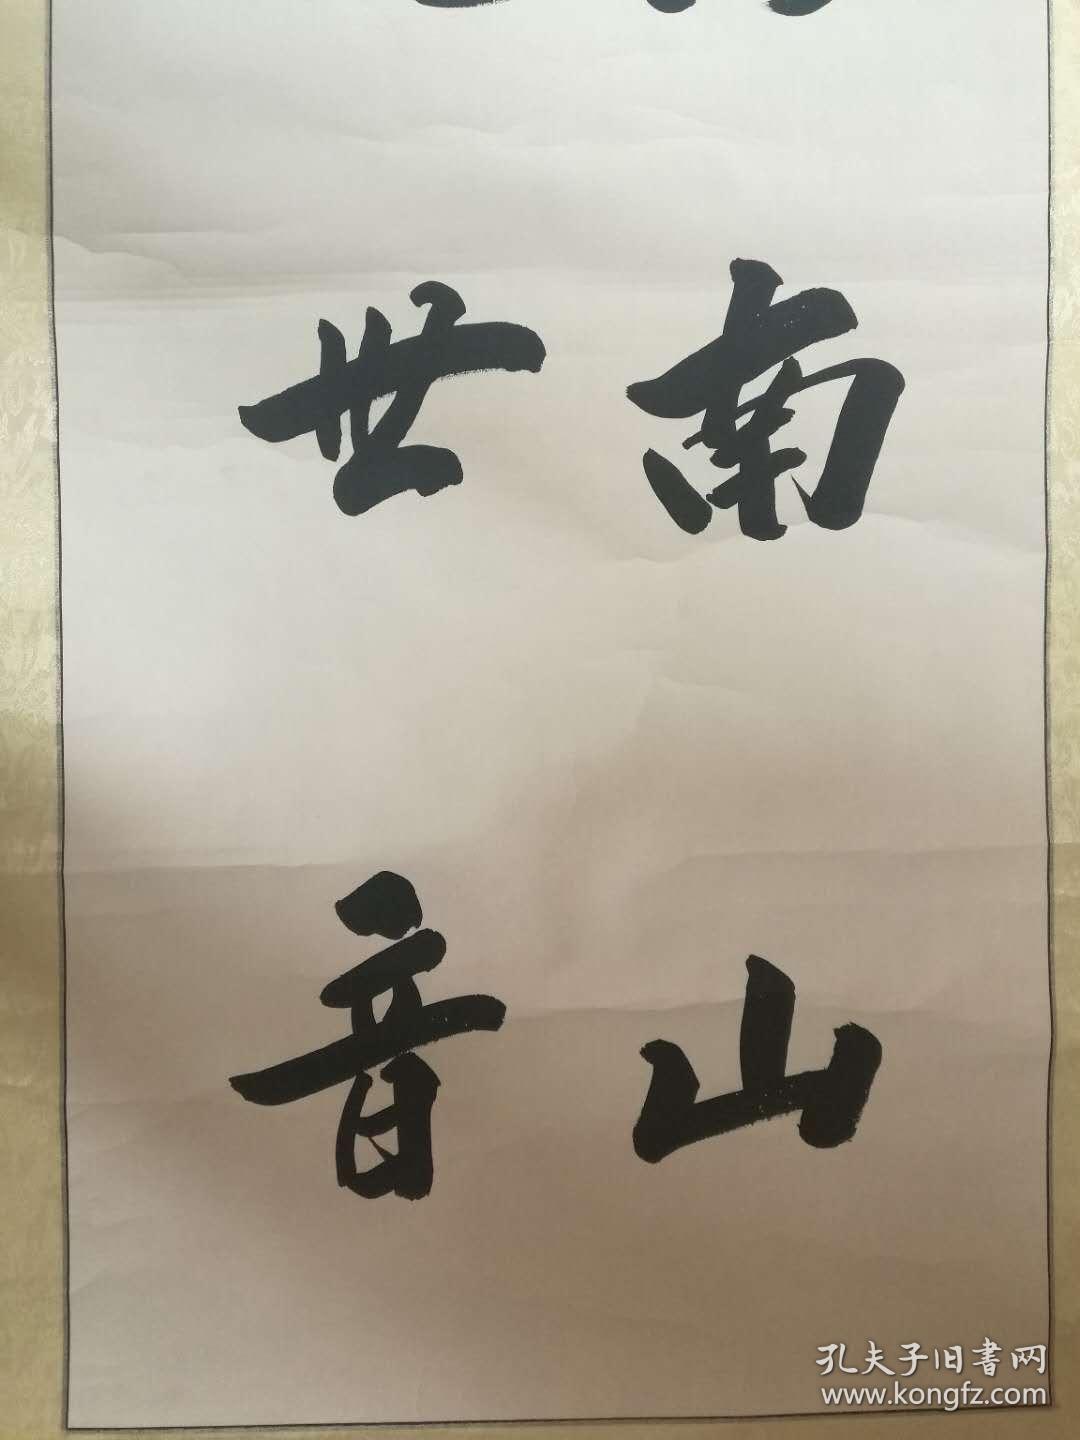 南山
世音
孔夫子旧书网
www.kongfz.com